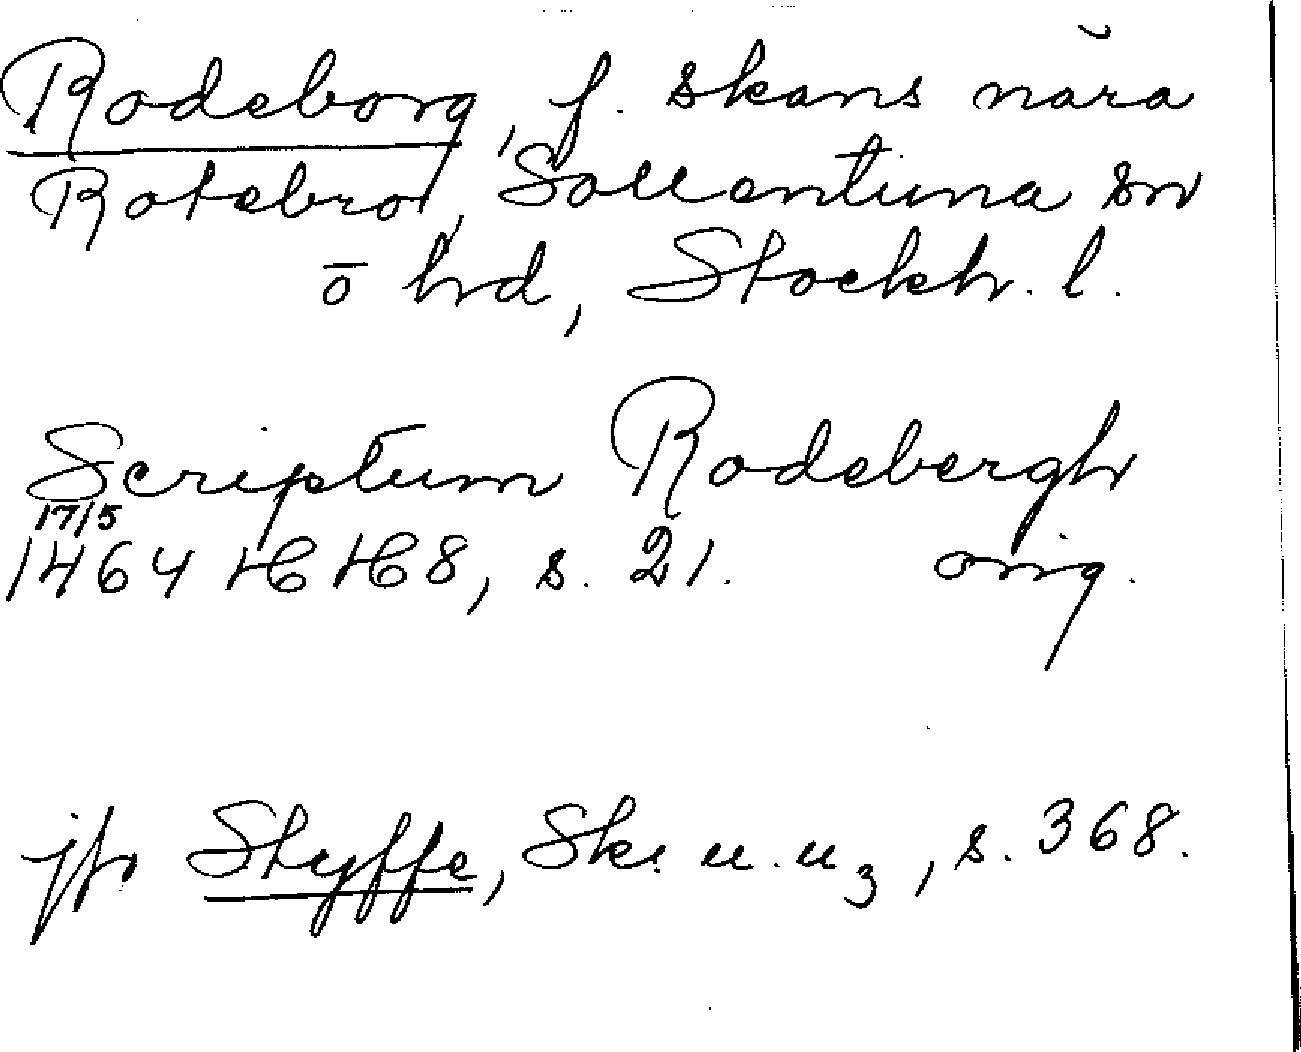 Rodeborg, f. skans nära
Rotebro, Sollentuna sn
o hd, Stockh. l.
Scriptum Rodebergh
17/5
1464 HH 8, s. 21. orig.
jfr Styffe, Sk. u. u3, s. 368.